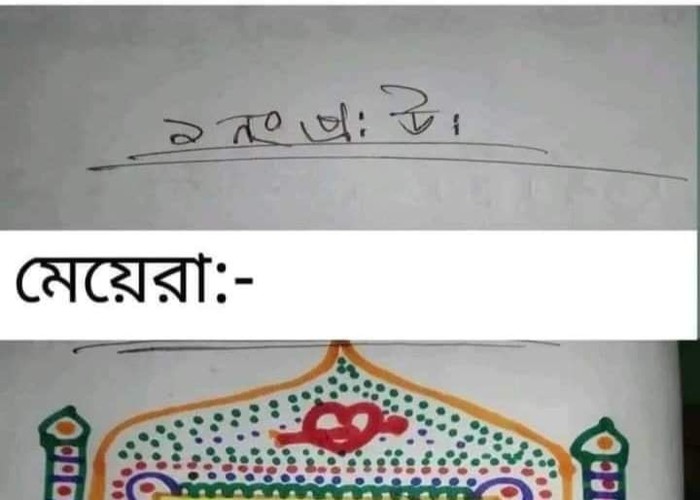 ১ নং প্র: উ:
মেয়েরা:-